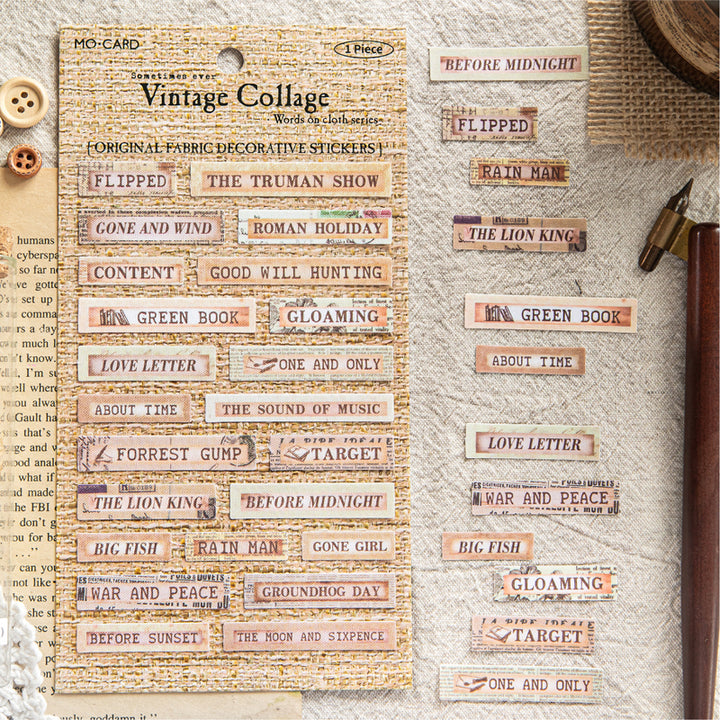 MO·CARD
1 Piece
Sometimes ever
Vintage Collage
Words on cloth series
[ORIGINAL FABRIC DECORATIVE STICKERS]
FLIPPED
THE TRUMAN SHOW
GONE AND WIND
ROMAN HOLIDAY
CONTENT
GOOD WILL HUNTING
GREEN BOOK
GLOAMING
LOVE LETTER
ONE AND ONLY
ABOUT TIME
THE SOUND OF MUSIC
FORREST GUMP
TARGET
THE LION KING
BEFORE MIDNIGHT
BIG FISH
RAIN MAN
GONE GIRL
WAR AND PEACE
GROUNDHOG DAY
BEFORE SUNSET
THE MOON AND SIXPENCE
BEFORE MIDNIGHT
FLIPPED
RAIN MAN
THE LION KING
GREEN BOOK
ABOUT TIME
LOVE LETTER
WAR AND PEACE
BIG FISH
GLOAMING
TARGET
ONE AND ONLY
humans
cybersp
so far
gotte
set up
a day
much
know.
I'm
where
you alwa
Gault ha
that's
and
good anal
what if
made
the FBI
don't g
you for ba
can you
not like
she st
goddamn it"